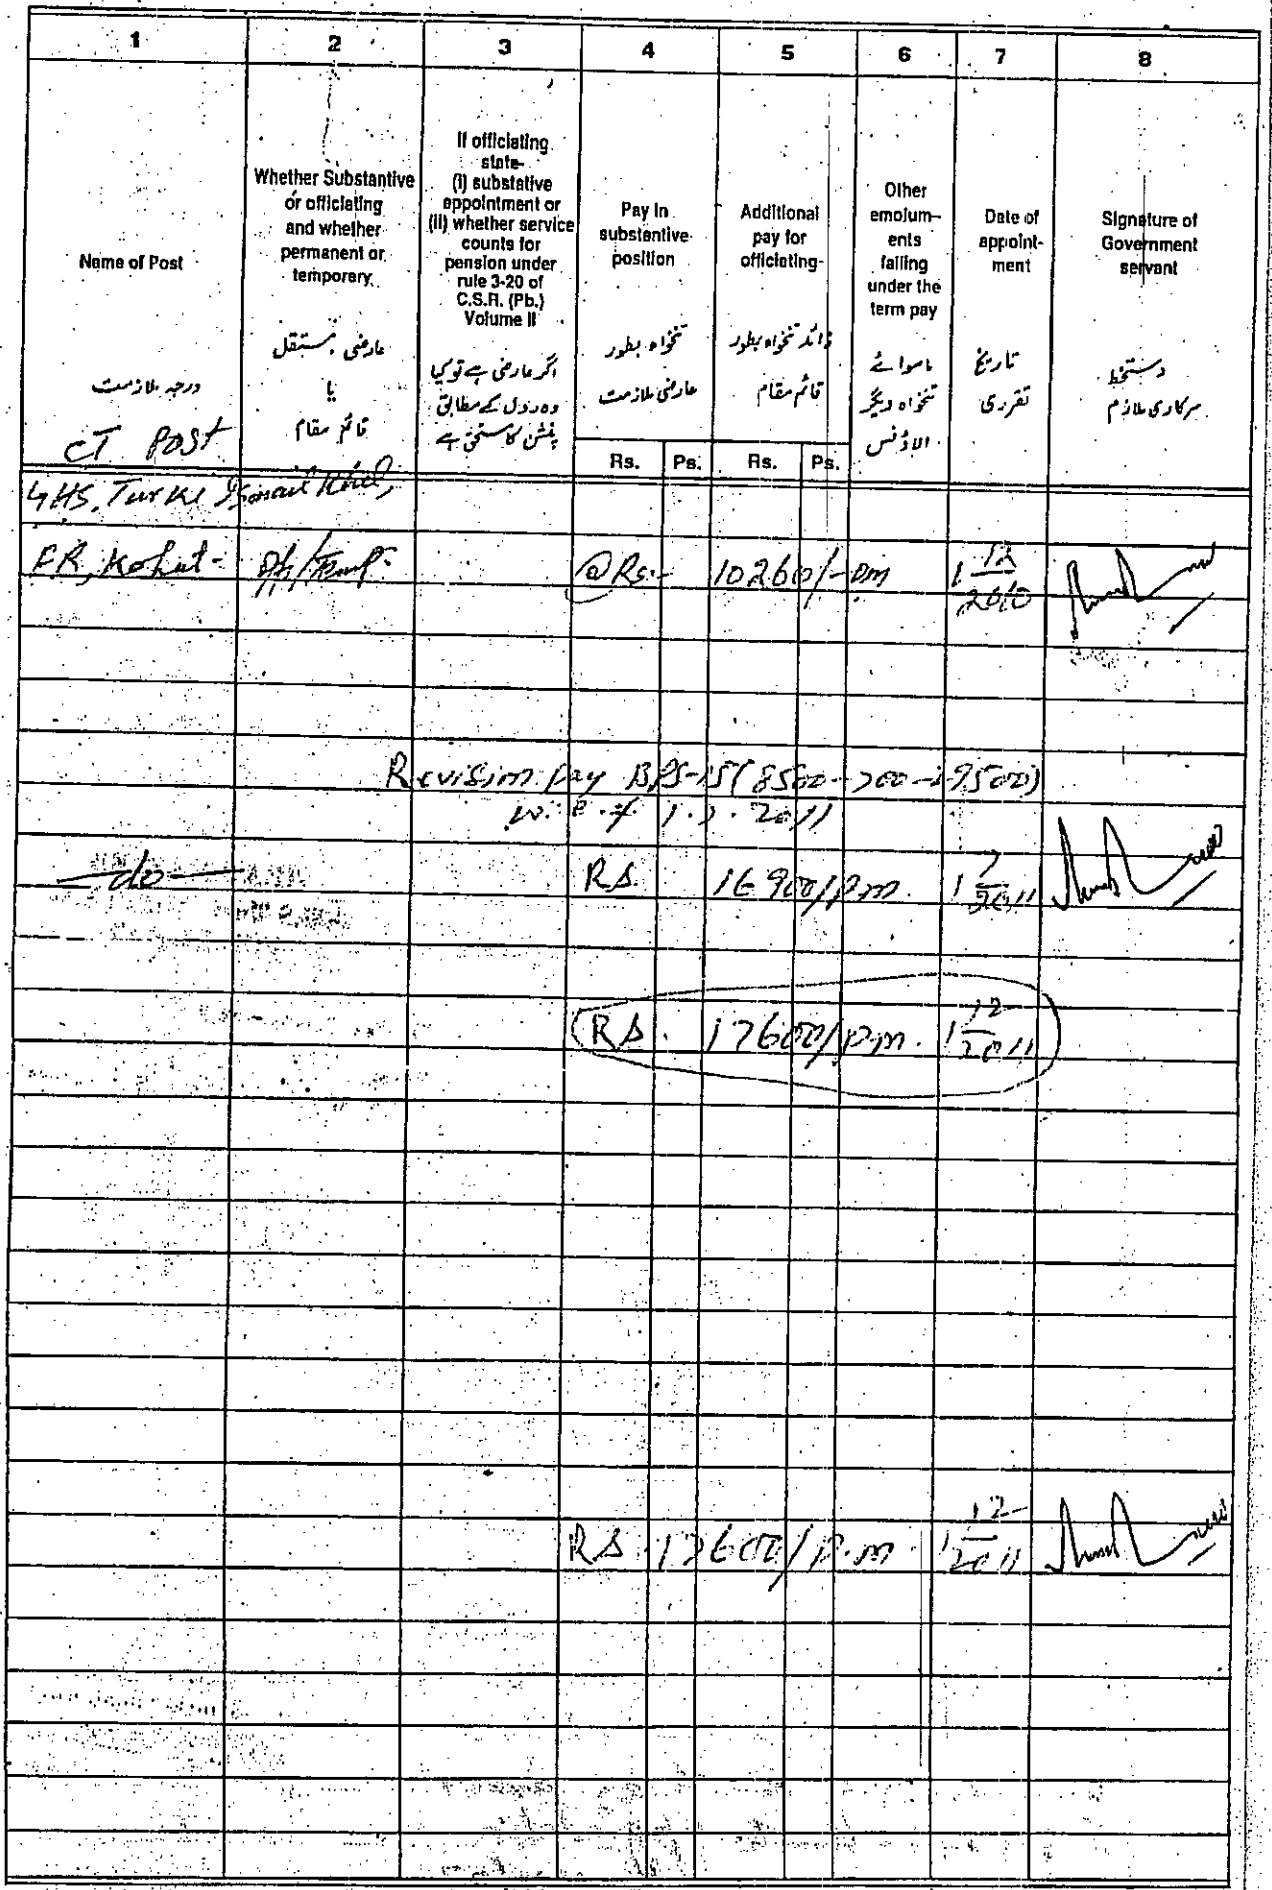 1 2 3 4 5 6 7 8
Name of Post
درجہ ملازمت
CT Post
Whether Substantive
or officiating
and whether
permanent or
temporary.
عارضی مستقل
یا
قائم مقام
If officiating
state-
(i) substative
appointment or
(ii) whether service
counts for
pension under
rule 3-20 of
C.S.R. (Pb.)
Volume II
اگر عارضی ہے تو کیا
وہ رول کے مطابق
پنشن کا مستحق ہے
Pay in
substantive
position
تنخواہ بطور
عارضی ملازمت
Additional
pay for
officiating
زائد تنخواہ بطور
قائم مقام
Other
emolum-
ents
falling
under the
term pay
ماسوائے
تنخواہ دیگر
الاؤنس
Date of
appoint-
ment
تاریخ
تقرری
Signature of
Government
servant
دستخط
سرکاری ملازم
Rs. Ps. Rs. Ps.
GHS, Turki Ismail Khel,
FR, Kohat- @Rs:- 10260/-pm 1 12/2010
Revision pay BPS-15 (8500-700-29500)
w.e.f 1.7.2011
-do- RS 16900/p.m. 1 7/2011
RS. 17600/p.m. 1 12/2011
RS. 17600/p.m. 1 12/2011